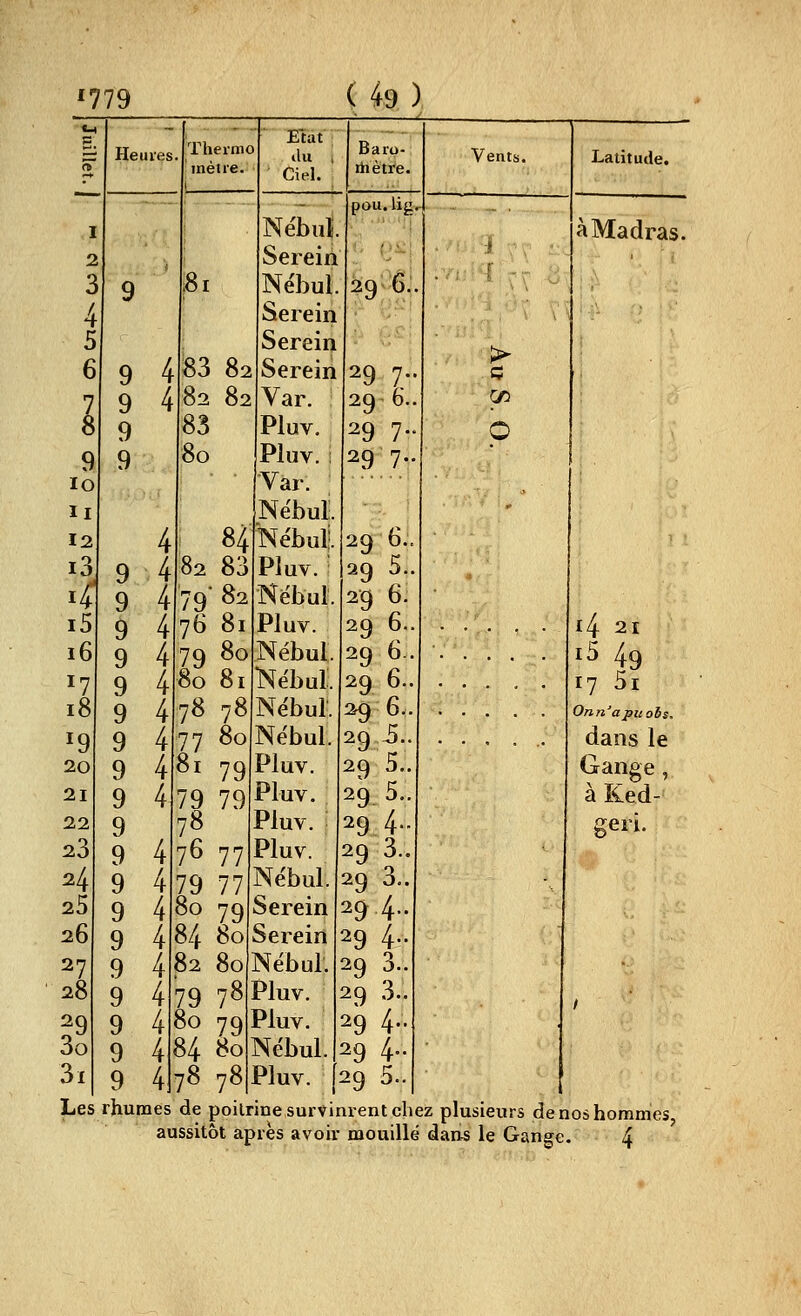 1779 ( 49 )
Juillet. Heures. Thermo mètre. Etat du Ciel. Baro- mètre. Vents. Latitude.
pou. lig.
1 Nébul. à Madras.
2 Serein
3 9 81 Nébul. 29 6..
4 Serein
5 Serein
6 9 4 83 82 Serein 29 7.. Au S. O.
7 9 4 82 82 Var. 29 6..
8 9 83 Pluv. 29 7..
9 9 80 Pluv. 29 7..
10 Var. ......
11 Nébul.
12 4 84 Nébul. 29 6..
13 9 4 82 83 Pluv. 29 5..
14 9 4 79 82 Nébul. 29 6.
15 9 4 76 81 Pluv. 29 6.. ..... 14 21
16 9 4 79 80 Nébul. 29 6.. ..... 15 49
17 9 4 80 81 Nébul. 29 6.. ..... 17 51
18 9 4 78 78 Nébul. 29 6.. ..... On n'a pu obs.
19 9 4 77 80 Nébul. 29 5.. ..... dans le
20 9 4 81 79 Pluv. 29 5.. Gange,
21 9 4 79 79 Pluv. 29 5.. à Ked-
22 9 78 Pluv. 29 4.. geri.
23 9 4 76 77 Pluv. 29 3..
24 9 4 79 77 Nébul. 29 3..
25 9 4 80 79 Serein 29 4..
26 9 4 84 80 Serein 29 4..
27 9 4 82 80 Nébul. 29 3..
28 9 4 79 78 Pluv. 29 3..
29 9 4 80 79 Pluv. 29 4..
30 9 4 84 80 Nébul. 29 4..
31 9 4 78 78 Pluv. 29 5..
Les rhumes de poitrine survinrent chez plusieurs de nos hommes,
aussitôt après avoir mouillé dans le Gange. 4